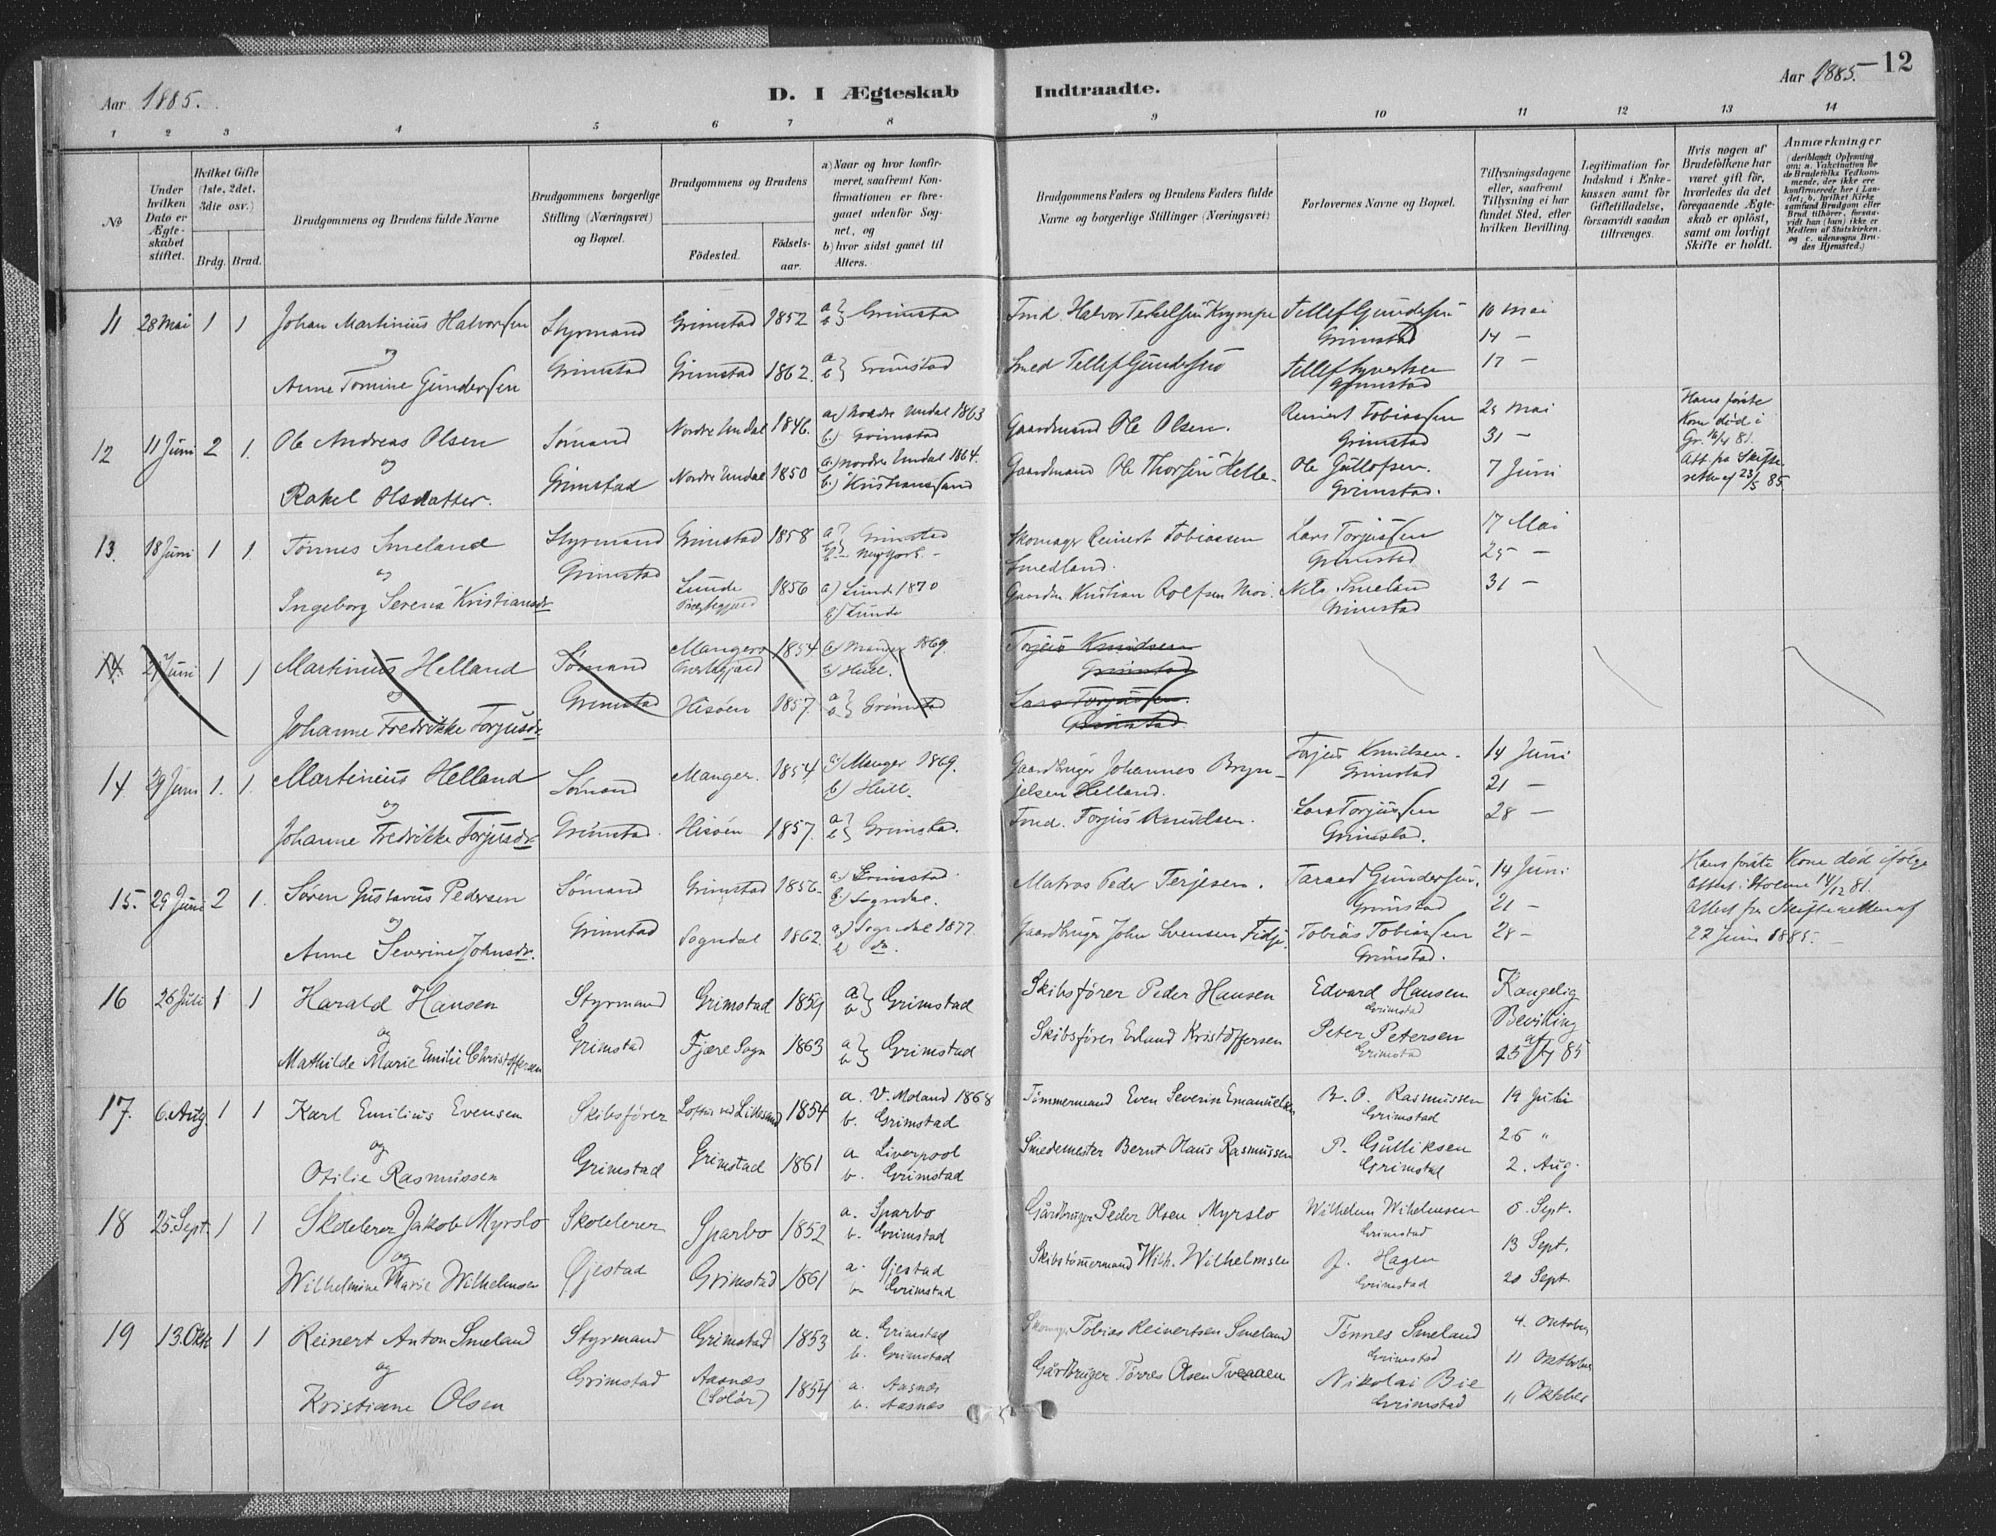 Aar 1885.
D. I Ægteskab Indtraadte.
Aar 1885. 12
1 2 3 4 5 6 7 8 9 10 11 12 13 14
No
Under hvilken Dato er Ægteskabet stiftet.
Hvilket Gifte (1ste, 2det, 3die osv.)
Brdg. Brud.
Brudgommens og Brudens fulde Navne
Brudgommens borgerlige Stilling (Næringsvei) og Bopæl.
Brudgommens og Brudens
Fødested. Fødselsaar.
a) Naar og hvor konfirmeret, saafremt Konfirmationen er foregaaet udenfor Sognet, og
b) hvor sidst gaaet til Alters.
Brudgommens Faders og Brudens Faders fulde Navne og borgerlige Stillinger (Næringsvei)
Forlovernes Navne og Bopæl.
Tillysningsdagene eller, saafremt Tillysning ei har fundet Sted, efter hvilken Bevilling.
Legitimation for Indskud i Enkekassen samt for Giftetilladelse, forsaavidt saadan tiltrænges.
Hvis nogen af Brudefolkene har været gift før, hvorledes da det foregaaende Ægteskab er opløst, samt om lovligt Skifte er holdt.
Anmærkninger
(deriblandt Oplysning om: a. Vakcination for de Brudefolks Vedkommende, der ikke ere konfirmerede her i Landet; b. hvilket Kirkesamfund Brudgom eller Brud tilhører, forsaavidt han (hun) ikke er Medlem af Statskirken, og c. udensogns Brudes Hjemsted.)
11 28 Mai 1 1 Johan Martinius Halvorsen Styrmand Grimstad 1852 a b Grimstad Halvor Terkelsen Krympe Tellef Gundersen 10 Mai
og Grimstad 14 –
Anne Tomine Gundersen Grimstad Grimstad 1862. a b Grimstad Smed Tellef Gundersen Tellef Syvertsen 17 –
Grimstad
12 11 Juni 2 1. Ole Andreas Olsen Sømand Nordre Undal 1846. a) Nordre Undal 1863 Gaardmand Ole Olsen. Reinert Tobiassen 25 Mai Hans første Kone død i
og b) Grimstad Grimstad 31 – Gr. 16/4 81.
Rakel Olsdatter. Grimstad Nordre Undal 1850 a) Nordre Undal 1864. Gaardmand Ole Thorsen Helle Ole Gullofsen. 7 Juni Att. fra Skifteretten af 23/5 85
b) Kristianssand Grimstad.
13. 18 Juni 1 1. Tønnes Smeland Styrmand Grimstad 1858 a Grimstad Skomager Reinert Tobiassen Lars Torjussen 17 Mai
og Grimstad b New York – Smedland. Grimstad 25 –
Ingeborg Serena Kristiansdr Lunde Præstegjæld 1856 a) Lunde 1870 Kristian Rolfsen Moi. Nils Smeland 31 –
b) Lunde Grimstad
14 Juni 1 1 Martinius Helland Sømand Manger 1854 a) Manger 1869. Torjus Knudsen
og Præstegjæld b) Heill. Grimstad
Johanne Fredrikke Torjusdr Grimstad Hisøen 1857. a b Grimstad Lars Torjussen.
Grimstad.
14 29 Juni 1. 1. Martinius Helland Sømand Manger. 1854 a) Manger 1869. Gaardbruger Johannes Brynjelsen Helland. Torjus Knudsen. 14 Juni
og b) Heill. Grimstad 21 –
Johanne Fredrikke Torjusdr. Grimstad. Hisøen 1857. a b Grimstad. Torjus Knudsen. Lars Torjussen 28 –
Grimstad.
15. 29 Juni 2 1. Søren Gustavus Pedersen Sømand Grimstad 1856. a) Grimstad. Matros Peder Terjesen. Taraed Gundersen. 14 Juni Hans første Kone død ifølge
og b) Sogndal. Grimstad 21 – Attest 14/12 81.
Anne Severine Johnsdr. Grimstad Sogndal 1862. a) Sogndal 1877. Gaardbruger John Svensen Fidje. Tobias Tobiassen 28 – Attest fra Skifteretten af
b do. Grimstad. 22 Juni 1885. –
16 26 Juli 1 1 Harald Hansen Styrmand Grimstad 1859 a b Grimstad Skibsfører Peder Hansen Edvard Hansen Kongelig
og Grimstad Bevilling
Mathilde Marie Emilie Christoffersen Grimstad Fjære Sogn 1863 a b Grimstad Skibsfører Erlund Kristoffersen Peter Petersen af
Grimstad 25/7 85
17. 6. Aug. 1 1 Karl Emilius Evensen Skibsfører Loftus ved Lillesand 1854 a. V. Moland 1868 Tømmermand Even Severin Emanuelsen R. O. Rasmussen 19 Juli
og b. Grimstad Grimstad 26 "
Otilie Rasmussen Grimstad Grimstad 1861 a Liverpool Smedemester Bernt Olaus Rasmussen P. Gulliksen 2. Aug.
b. Grimstad Grimstad
18 25. Sept. 1 1 Skolelærer Jakob Myrslo Skolelærer Sparbo 1852 a. Sparbo Gårdbruger Peder Olsen Myrslo Wilhelm Wilhelmsen 6 Sept.
og b. Grimstad Grimstad 13 Sept.
Wilhelmine Marie Wilhelmsen Øjestad Grimstad 1861 a. Øjestad Skibstømmermand Wilh. Wilhelmsen J. Hagen 20 Sept.
b Grimstad Grimstad
19 13. Okt 1 1 Reinert Anton Smeland Styrmand Grimstad 1853 a. Grimstad Skomager Tobias Reinertsen Smeland Tønnes Smeland 4. Oktober
og b. Grimstad Grimstad 11 Oktober
Kristiane Olsen Grimstad Aasnæs (Solør) 1854 a. Aasnæs Gårdbruger Tørres Olsen Tveraaen Nikolai Bie 11 Oktober
b. Aasnæs Grimstad